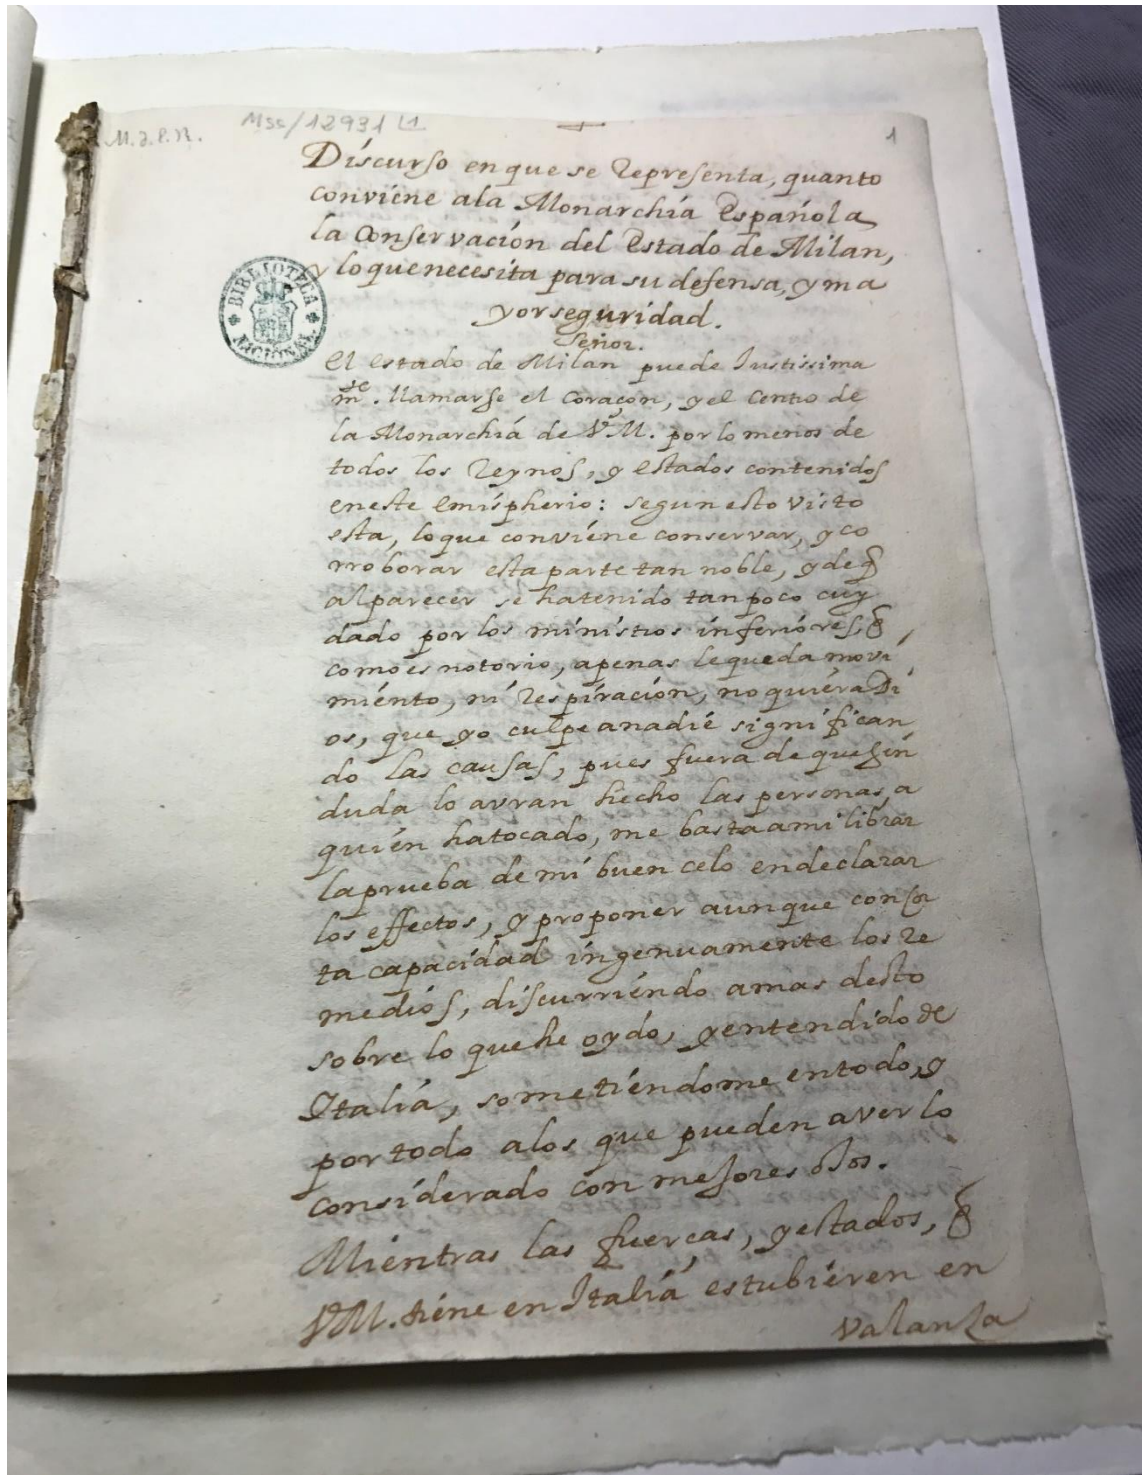 M.a.P.R.
Mss/12931/1
1
Díscurso en que se representa, quanto
conviene ala Monarchía Española
la Conservación del Estado de Milan,
y loquenecesita para su defensa, y ma
yor seguridad.
Señor.
El estado de Milan puede Iustissima
mte. llamarse el Coraçon, y el Centro de
la Monarchiá de V.M. por lo menos de
todos los Reynos, y estados contenidos
eneste emispherio: segun esto visto
esta, loque conviéne conservar, y co
rroborar esta parte tan noble, y de q̃
al parecer se hatenido tan poco cuy
dado por los ministros inferióres, q̃
como es notorio, apenas lequeda moví
miénto, ni respíración, no quiéra Dí
os, que yo culpe anadié significan
do las causas, pues fuera de que sin
duda lo avran hecho las personas, a
quién hatocado, me basta ami librar
la prueba de mi buen celo en declarar
los effectos, y proponer aunque con cor
ta capacidad ingenuamente los re
medios, discurriéndo amas desto
sobre lo quehe oydo, y entendido de
Ytaliá, sometiéndome entodo, y
por todo alos que pueden averlo
considerado con mejores ojos.
Mientras las fuercas, y estados, q̃
V.M. tiéne en Italiá estubiéren en
valanza
BIBLIOTECA
NACIONAL